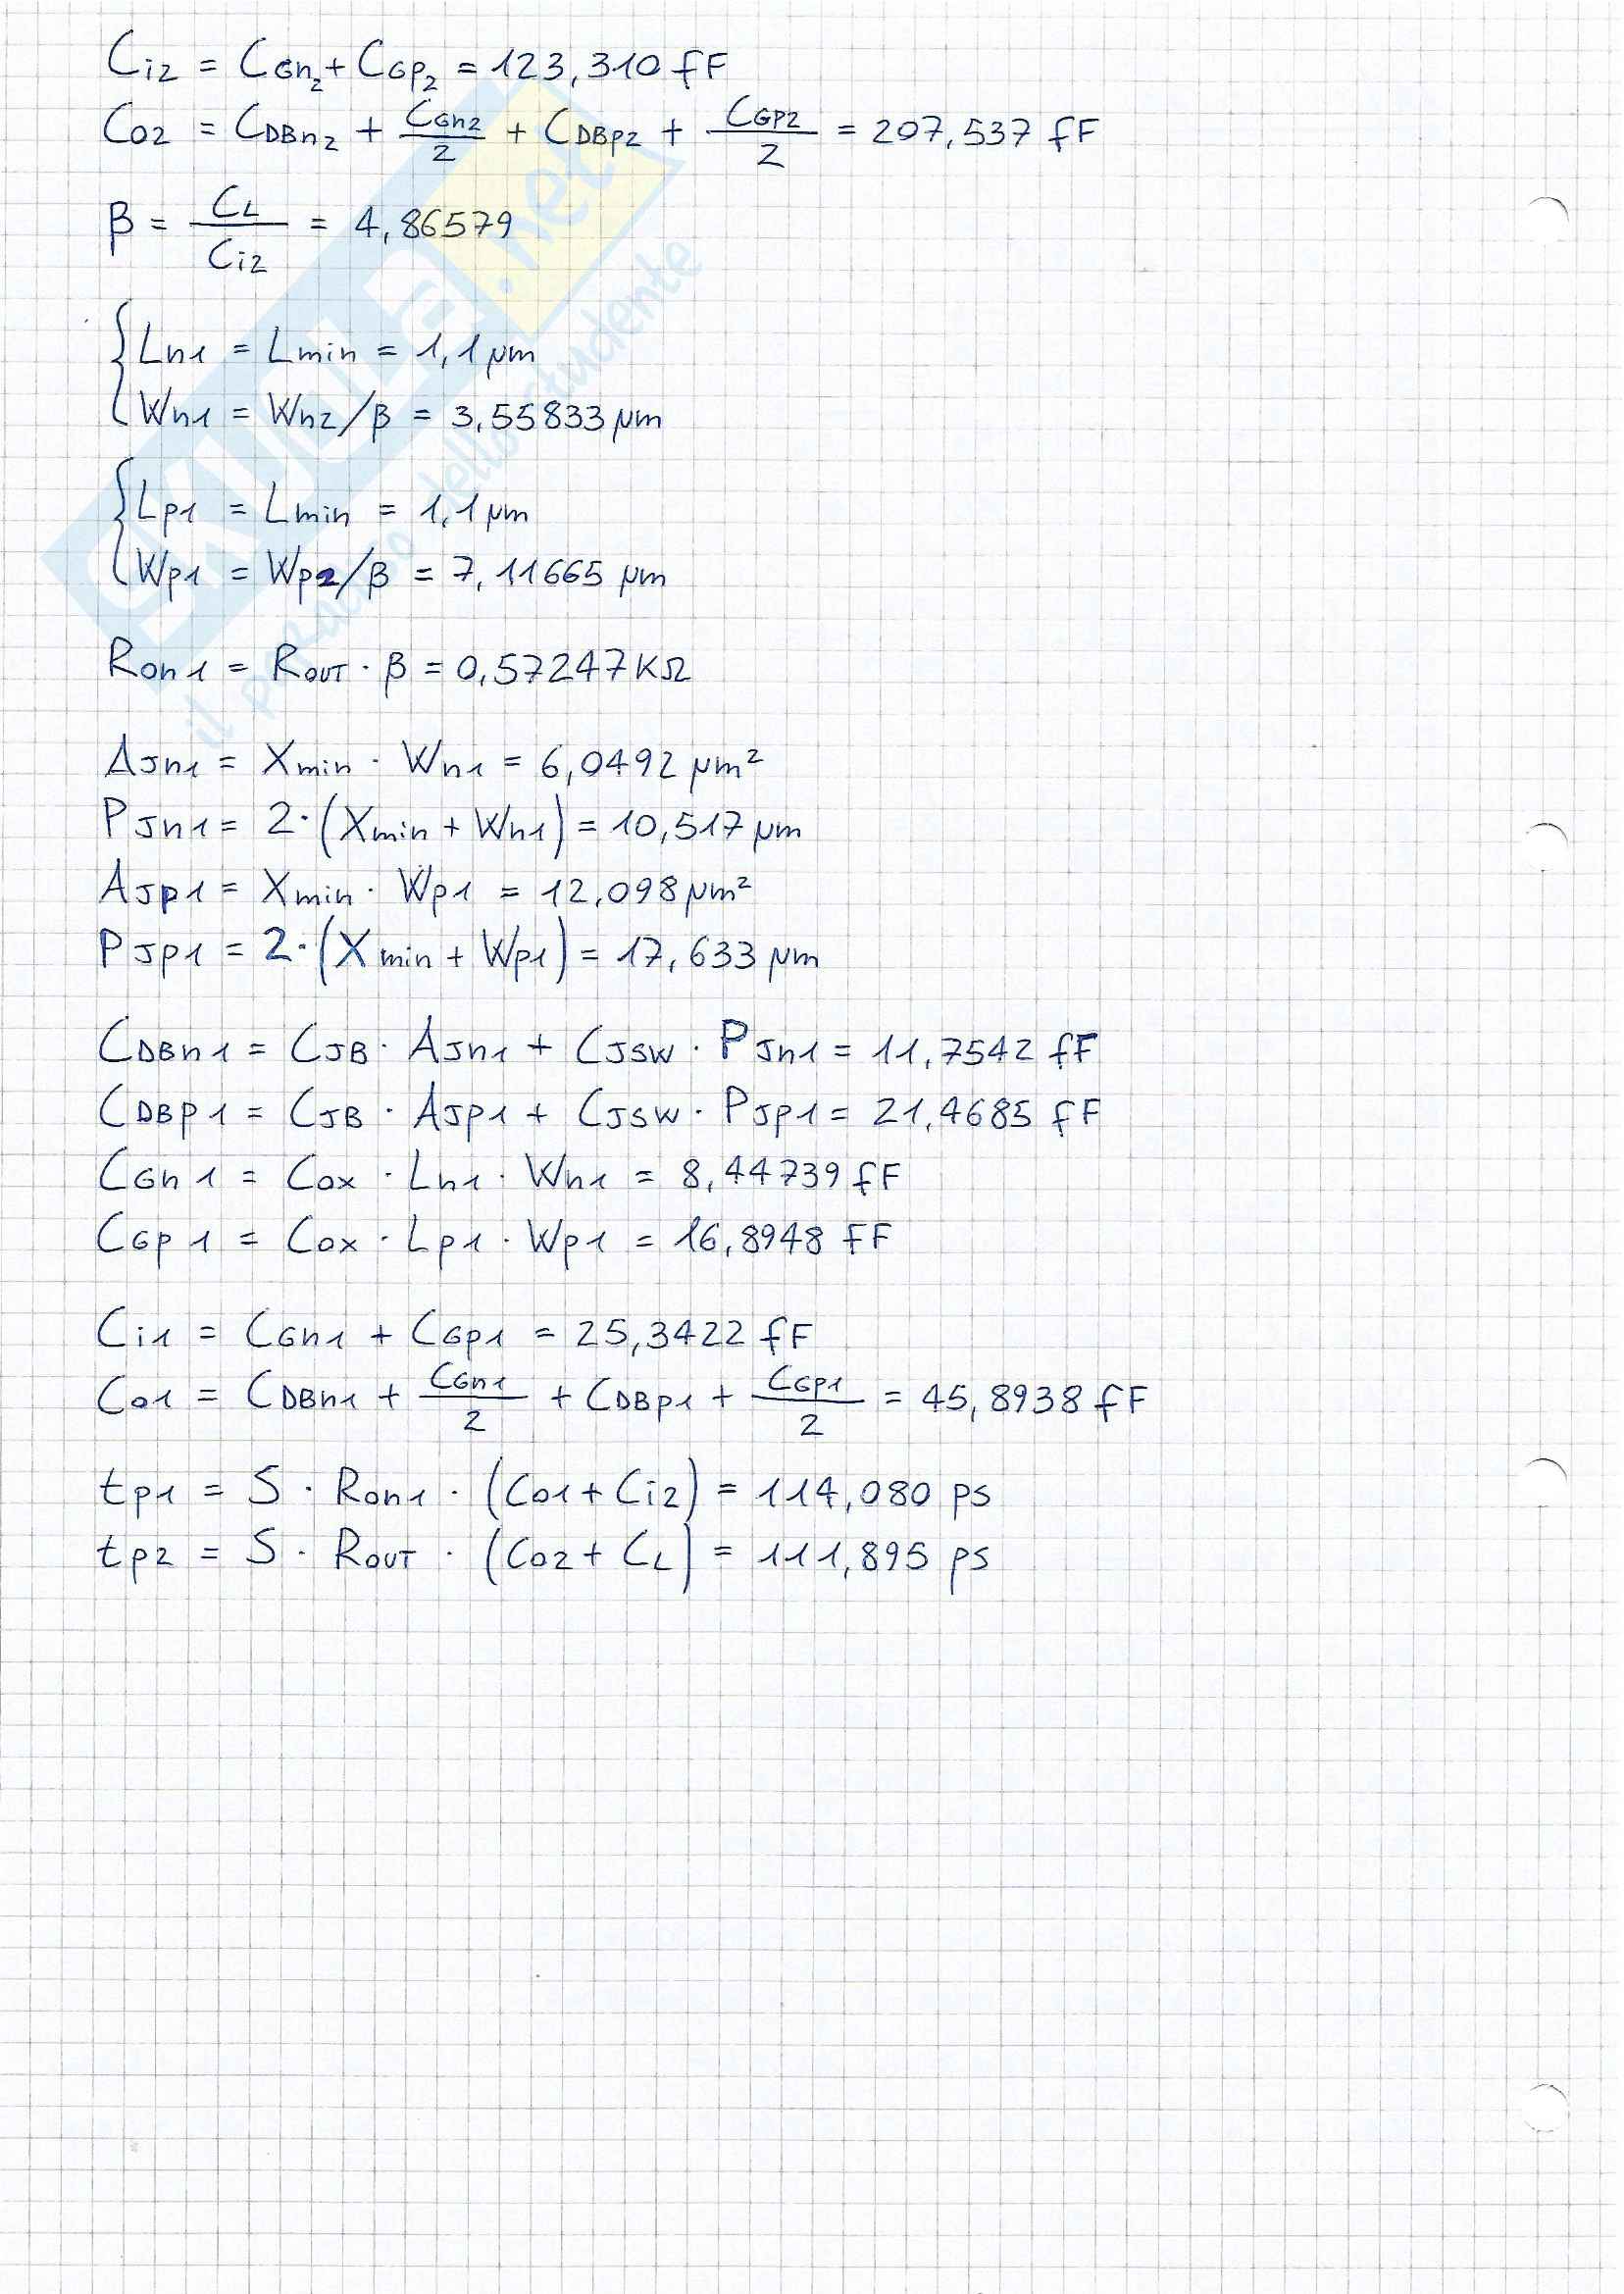 Ci2 = CGn2 + CGp2 = 123,310 fF
Co2 = CDBn2 + CGn2/2 + CDBp2 + CGP2/2 = 207,537 fF
β = CL/Ci2 = 4,86579
{ Ln1 = Lmin = 1,1 μm
Wn1 = Wn2/β = 3,55833 μm
{ Lp1 = Lmin = 1,1 μm
Wp1 = Wp2/β = 7,11665 μm
Ron1 = ROUT · β = 0,57247 KΩ
AJn1 = Xmin · Wn1 = 6,0492 μm²
PJn1 = 2·(Xmin + Wn1) = 10,517 μm
AJp1 = Xmin · Wp1 = 12,098 μm²
PJp1 = 2·(Xmin + Wp1) = 17,633 μm
CDBn1 = CJB · AJn1 + CJSW · PJn1 = 11,7542 fF
CDBp1 = CJB · AJp1 + CJSW · PJp1 = 21,4685 fF
CGn1 = Cox · Ln1 · Wn1 = 8,44739 fF
CGp1 = Cox · Lp1 · Wp1 = 16,8948 fF
Ci1 = CGn1 + CGp1 = 25,3422 fF
Co1 = CDBn1 + CGn1/2 + CDBp1 + CGp1/2 = 45,8938 fF
tp1 = S · Ron1 · (Co1 + Ci2) = 114,080 ps
tp2 = S · ROUT · (Co2 + CL) = 111,895 ps